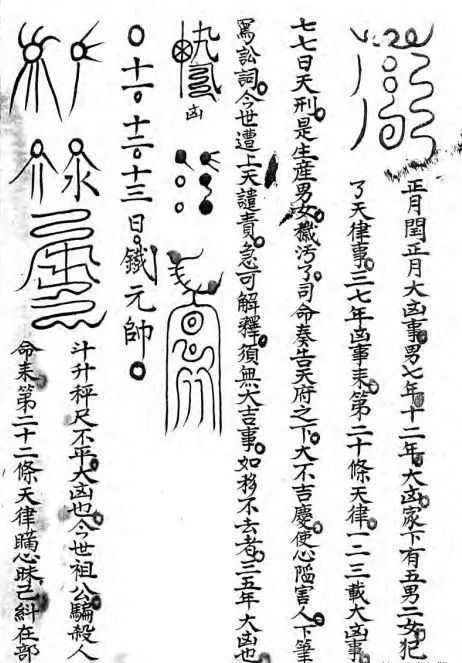 正月閏正月大凶事男七年十二年大凶家下有五男二女犯
了天律事三七年凶事來第二十條天律一二三載大凶事
七七日天刑是生産男女穢污了司命奏告天府之下大不吉慶使心隂害人下筆
罵訟詞今世遭上天譴責急可解釋須無大吉事如移不去者三五年大凶也
凶
十一十二十三日鐵元帥
斗升秤尺不平大凶也今世祖公騙殺人
命來第二十二條天律瞞心昧己糾在部